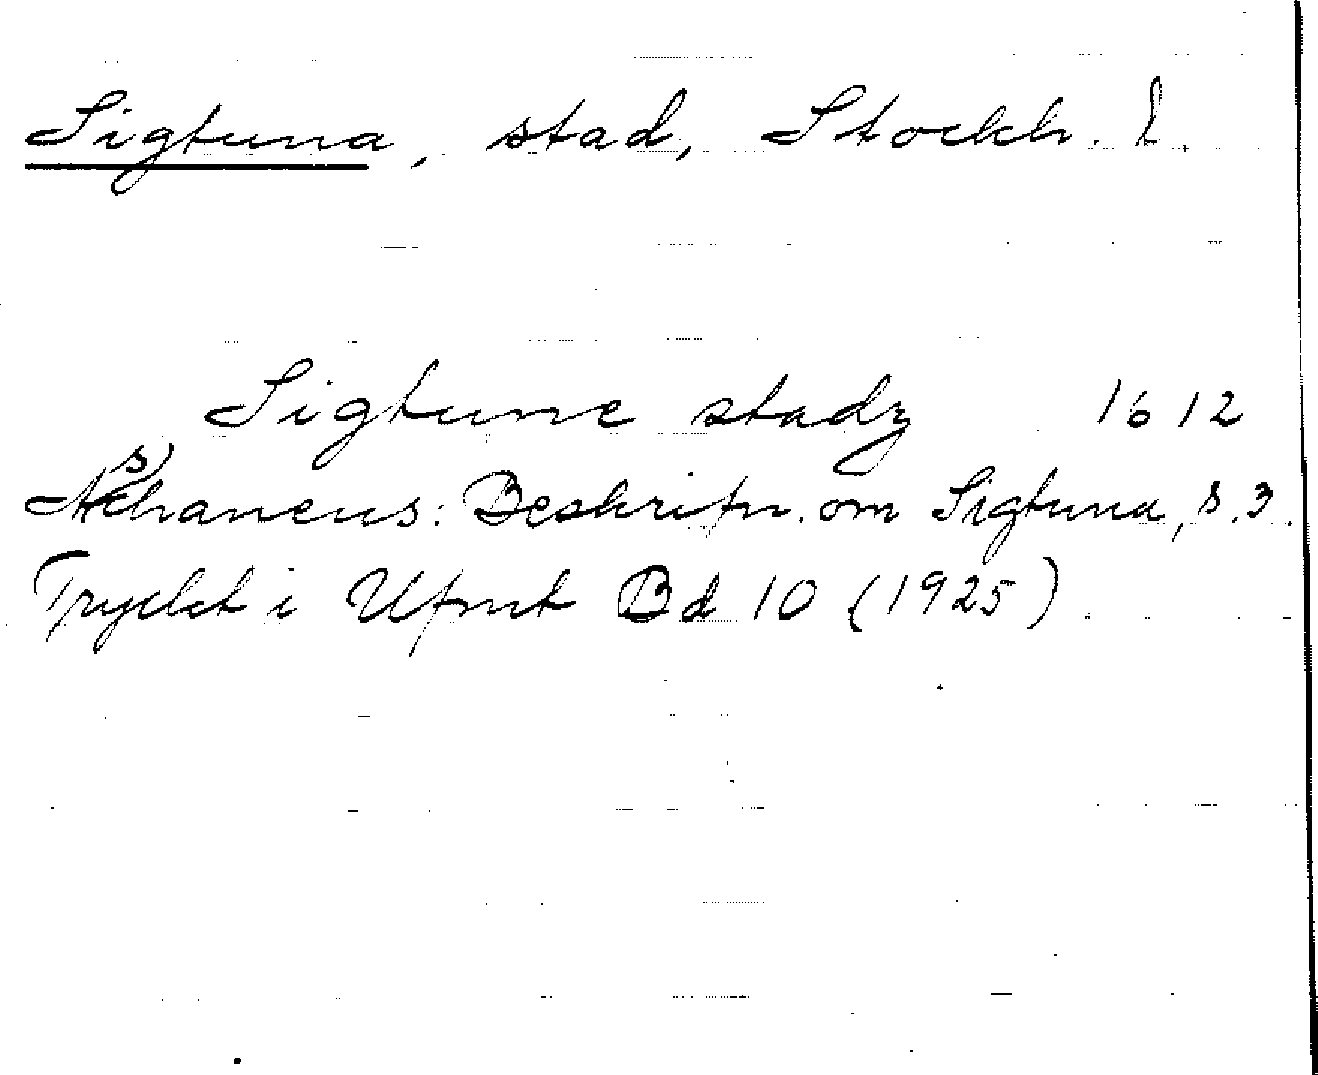 Sigtuna, stad, Stockh. l.
Sigtune stadz 1612
Aschaneus: Beskrifn. om Sigtuna, s. 3.
Tryckt i Ufmt Bd 10 (1925)